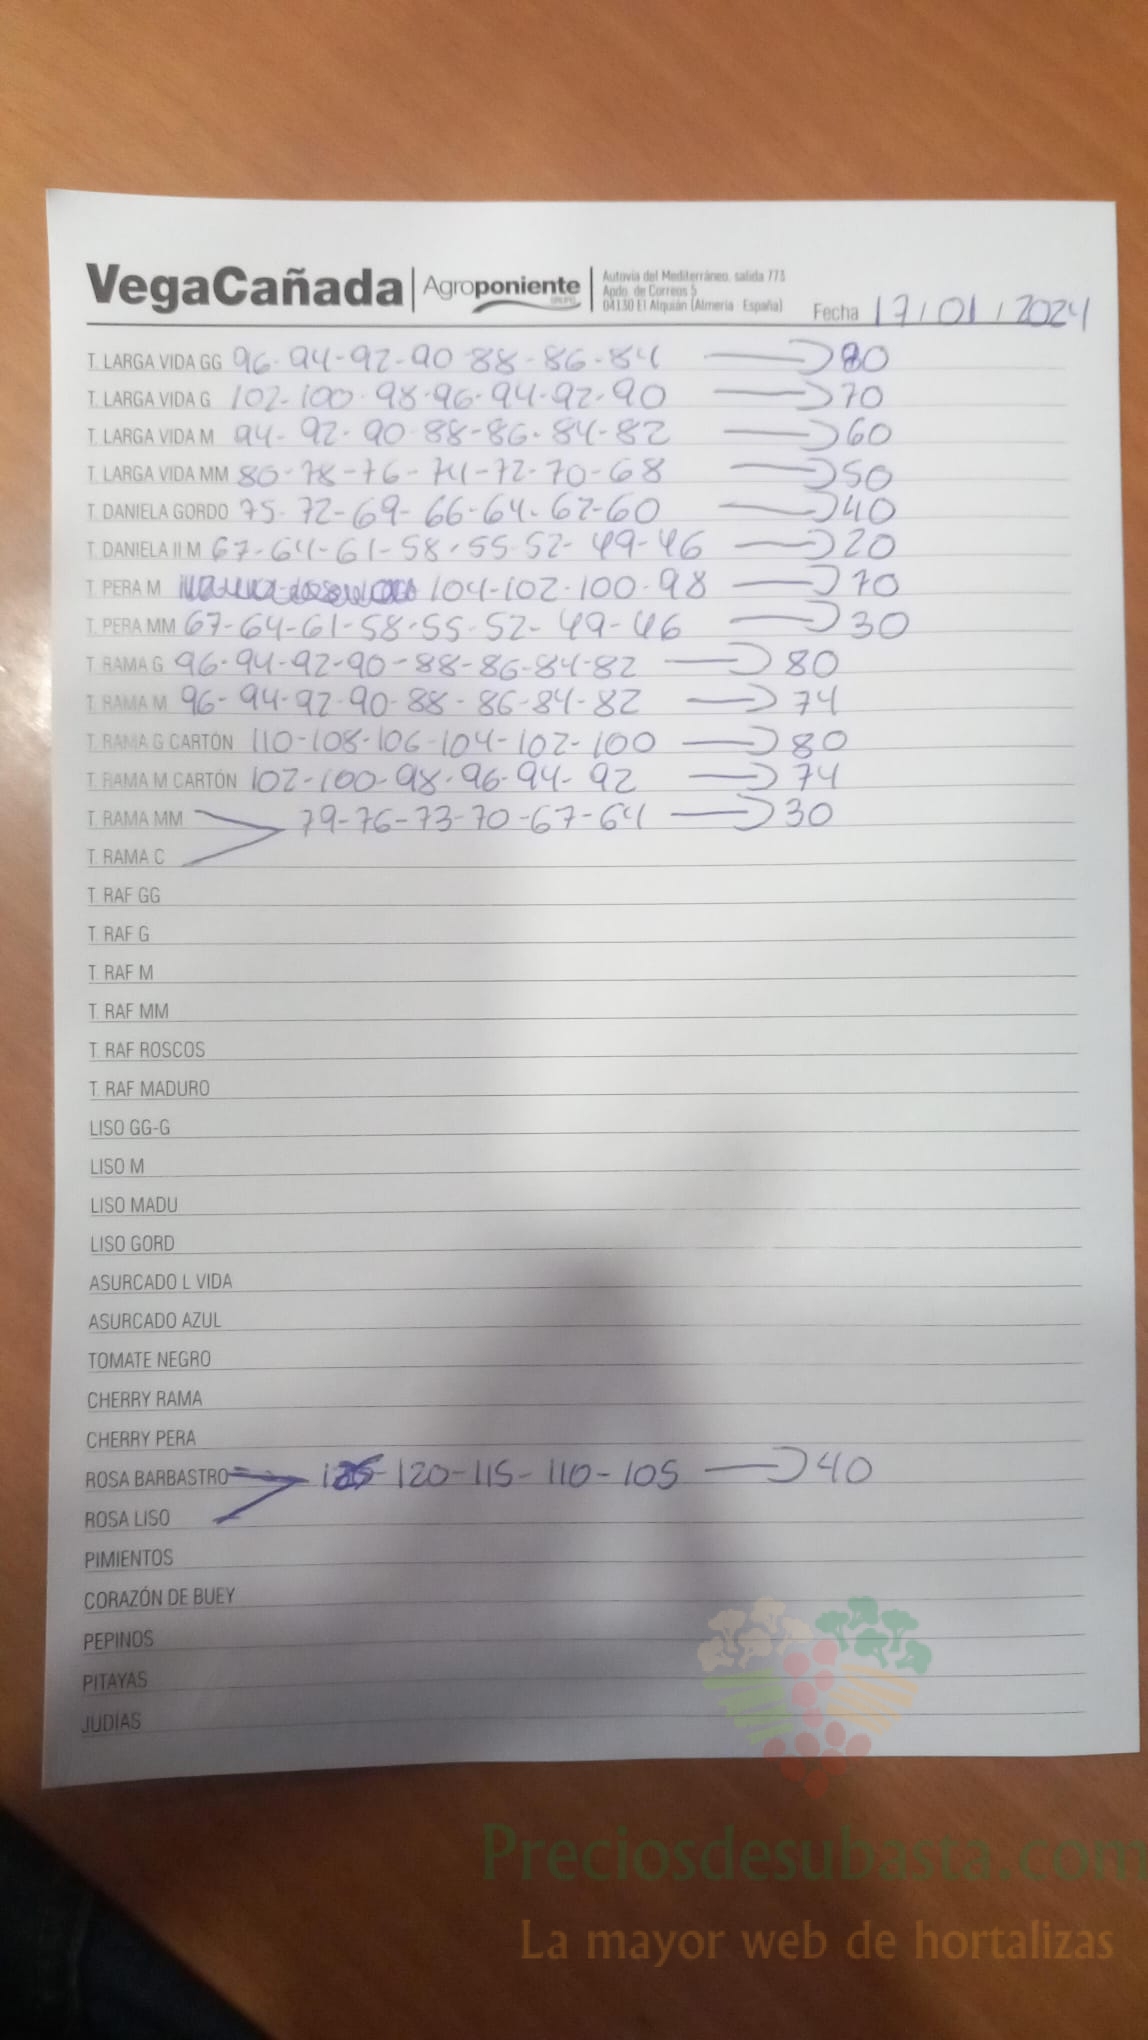 VegaCañada Agroponiente GRUPO
Autovía del Mediterráneo, salida 773
Apdo. de Correos 5
04130 El Alquián (Almería · España)
Fecha 17/01/2024
T. LARGA VIDA GG 96-94-92-90-88-86-84 80
T. LARGA VIDA G 102-100-98-96-94-92-90 70
T. LARGA VIDA M 94-92-90-88-86-84-82 60
T. LARGA VIDA MM 80-78-76-74-72-70-68 50
T. DANIELA GORDO 75-72-69-66-64-62-60 40
T. DANIELA II M 67-64-61-58-55-52-49-46 20
T. PERA M 104-102-100-98 70
T. PERA MM 67-64-61-58-55-52-49-46 30
T. RAMA G 96-94-92-90-88-86-84-82 80
T. RAMA M 96-94-92-90-88-86-84-82 74
T. RAMA G CARTÓN 110-108-106-104-102-100 80
T. RAMA M CARTÓN 102-100-98-96-94-92 74
T. RAMA MM 79-76-73-70-67-64 30
T. RAMA C
T. RAF GG
T. RAF G
T. RAF M
T. RAF MM
T. RAF ROSCOS
T. RAF MADURO
LISO GG-G
LISO M
LISO MADU
LISO GORD
ASURCADO L VIDA
ASURCADO AZUL
TOMATE NEGRO
CHERRY RAMA
CHERRY PERA
ROSA BARBASTRO 125-120-115-110-105 40
ROSA LISO
PIMIENTOS
CORAZÓN DE BUEY
PEPINOS
PITAYAS
JUDIAS
Preciosdesubasta.com
La mayor web de hortalizas